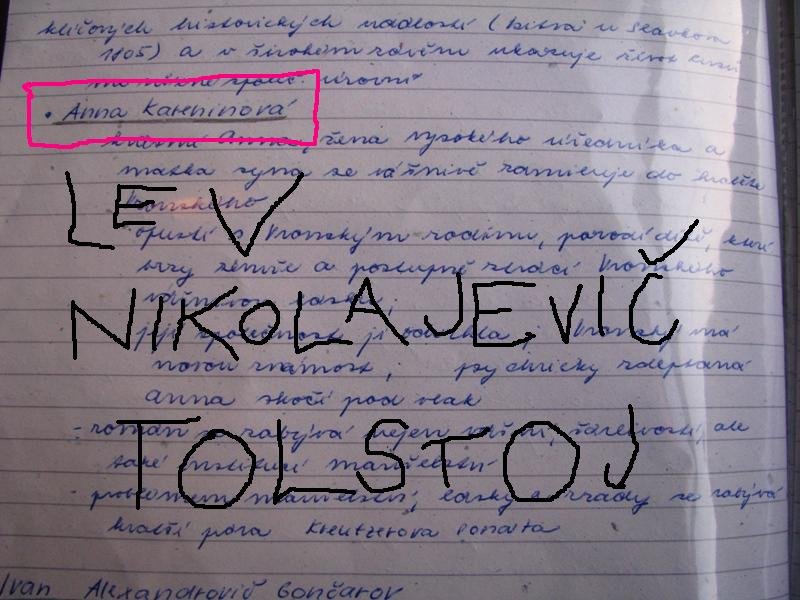 klíčových historických událostí (bitva u Slavkova
1805) a v širokém záběru ukazuje život
• Anna Kareninová
krásná Anna, žena vysokého úředníka a
matka syna se vášnivě zamiluje do hraběte
Vronského
LEV
opustí s Vronským rodinu, porodí dítě, které
brzy zemře a postupně ztrácí Vronského
NIKOLAJEVIČ
její společnost ji odsuzuje, Vronský má
novou známost, psychicky zdeptaná
Anna skočí pod vlak
TOLSTOJ
- román se zabývá nejen vášní, žárlivostí, ale
také institucí manželství
- problémem manželství, lásky a zrady se zabývá
kratší próza Kreutzerova sonáta
Ivan Alexandrovič Gončarov